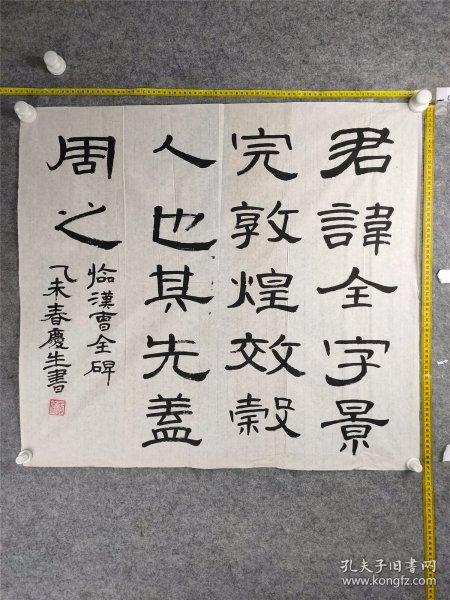 君諱全字景
完敦煌效穀
人也其先蓋
周之
臨漢曹全碑
乙未春慶生書
孔夫子旧书网
www.kongfz.com